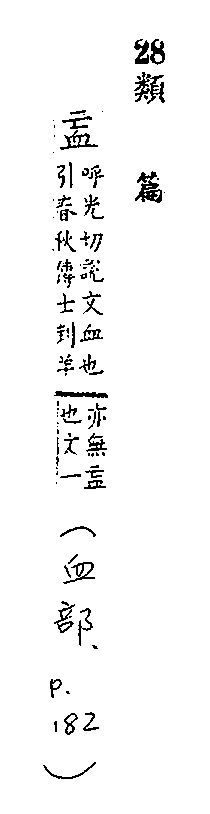 28 類篇
衁
呼光切說文血也
引春秋傳士刲羊
亦無衁
也文一
(血部、p.182)